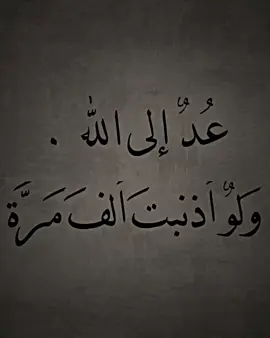 عُدْ إلى الله .
وَلَوْ أذنبتَ ألفَ مَرَّة